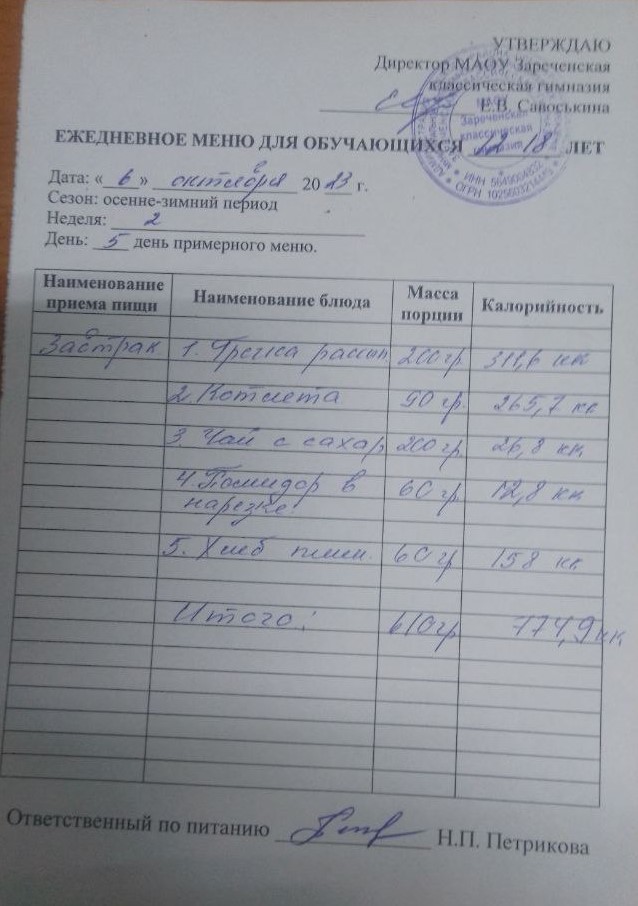 УТВЕРЖДАЮ
Директор МАОУ Зареченская
классическая гимназия
Е.В. Савоськина
Зареченская
классическая
гимназия
ЕЖЕДНЕВНОЕ МЕНЮ ДЛЯ ОБУЧАЮЩИХСЯ 12-18 ЛЕТ
Дата: «6» октября 2023 г.
Сезон: осенне-зимний период
Неделя: 2
День: 5 день примерного меню.
Наименование приема пищи Наименование блюда Масса порции Калорийность
Завтрак 1. Гречка рассып 200 гр. 311,6 кк
2. Котлета 90 гр. 265,7 кк
3. Чай с сахар 200 гр. 26,8 кк
4. Помидор в 60 гр 12,8 кк
нарезке
5. Хлеб пшен. 60 гр 158 кк
Итого: 610 гр 774,9 кк
Ответственный по питанию Н.П. Петрикова